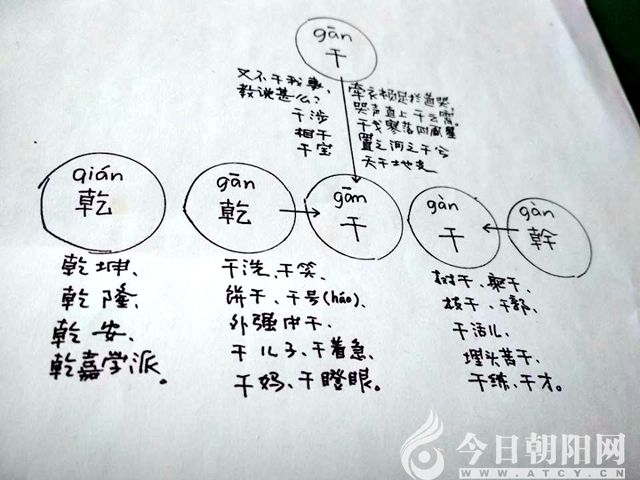 gān
干
又不干我事,
教说甚么?
干涉
相干
干宝
牵衣顿足拦道哭,
哭声直上干云霄。
干戈寥落四周星
置之河之干兮
天干地支
qián
乾
乾坤、
乾隆、
乾安、
乾嘉学派。
gān
乾
gān
干
干洗、干笑、
饼干、干号(háo)、
外强中干、
干儿子、干着急、
干妈、干瞪眼。
gàn
干
gàn
幹
树干、躯干、
枝干、干部、
干活儿、
埋头苦干、
干练、干才。
今日朝阳网
WWW.ATCY.CN